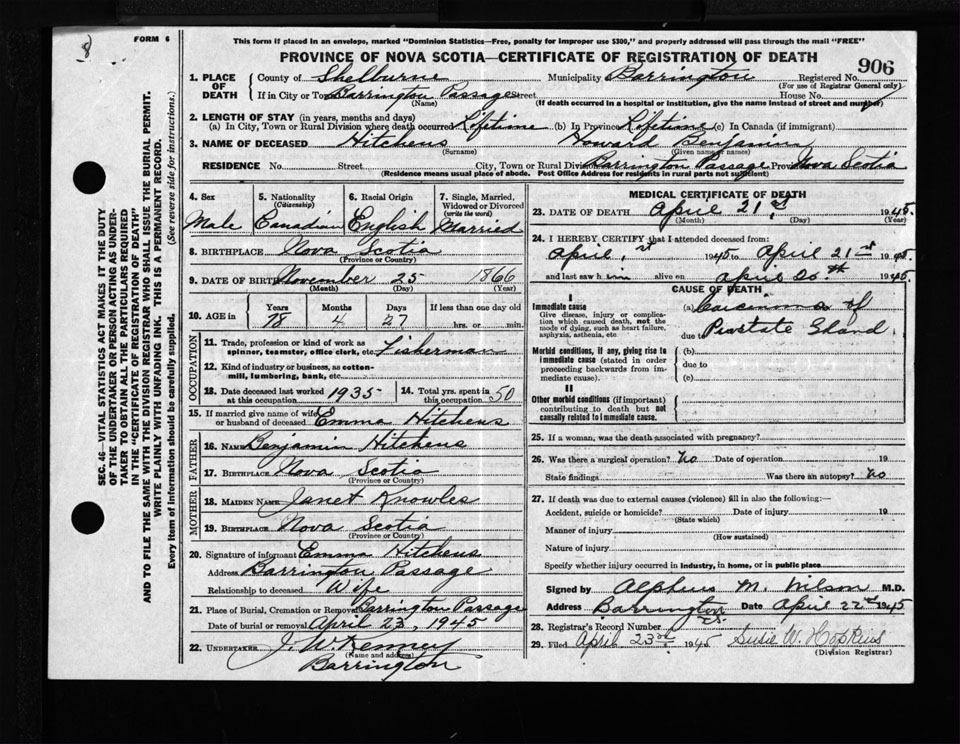 8
FORM 6
This form if placed in an envelope, marked "Dominion Statistics—Free, penalty for improper use $300," and properly addressed will pass through the mail "FREE"
PROVINCE OF NOVA SCOTIA—CERTIFICATE OF REGISTRATION OF DEATH
906
1. PLACE OF DEATH
County of Shelburne Municipality Barrington Registered No.
(For use of Registrar General only)
If in City or Town Barrington Passage Street House No.
(Name) (If death occurred in a hospital or institution, give the name instead of street and number)
2. LENGTH OF STAY (in years, months and days)
(a) In City, Town or Rural Division where death occurred Lifetime (b) In Province Lifetime (c) In Canada (if immigrant)
3. NAME OF DECEASED Hitchens Howard Benjamin
(Surname) (Given name or names)
RESIDENCE No. Street City, Town or Rural Division Barrington Passage Province Nova Scotia
(Residence means usual place of abode. Post Office Address for residents in rural parts not sufficient)
4. Sex
Male
5. Nationality (Citizenship)
Canadian
6. Racial Origin
English
7. Single, Married, Widowed or Divorced (write the word)
Married
8. BIRTHPLACE Nova Scotia
(Province or Country)
9. DATE OF BIRTH November 25 1866
(Month) (Day) (Year)
10. AGE in Years Months Days If less than one day old
78 4 27 hrs. or min.
OCCUPATION
11. Trade, profession or kind of work as spinner, teamster, office clerk, etc. Fisherman
12. Kind of industry or business, as cotton-mill, lumbering, bank, etc.
13. Date deceased last worked at this occupation 1935 14. Total yrs. spent in this occupation 50
15. If married give name of wife or husband of deceased Emma Hitchens
FATHER
16. NAME Benjamin Hitchens
17. BIRTHPLACE Nova Scotia
(Province or Country)
MOTHER
18. MAIDEN NAME Janet Knowles
19. BIRTHPLACE Nova Scotia
(Province or Country)
20. Signature of informant Emma Hitchens
Address Barrington Passage
Relationship to deceased Wife
21. Place of Burial, Cremation or Removal Barrington Passage
Date of burial or removal April 23, 1945
22. UNDERTAKER J. W. Kenney
(Name and address)
Barrington
MEDICAL CERTIFICATE OF DEATH
23. DATE OF DEATH April 21st 1945.
(Month) (Day)
24. I HEREBY CERTIFY that I attended deceased from:
April 1st 1945 to April 21st 1945.
and last saw him alive on April 20th 1945
CAUSE OF DEATH
I
Immediate cause
Give disease, injury or complication which caused death, not the mode of dying, such as heart failure, asphyxia, asthenia, etc
(a) Carcinoma of
due to Prostate Gland.
Morbid conditions, if any, giving rise to immediate cause (stated in order proceeding backwards from immediate cause).
(b)
due to
(c)
II
Other morbid conditions (if important) contributing to death but not causally related to immediate cause.
25. If a woman, was the death associated with pregnancy?
26. Was there a surgical operation? No Date of operation 19
State findings Was there an autopsy? No
27. If death was due to external causes (violence) fill in also the following:—
Accident, suicide or homicide? Date of injury 19
(State which)
Manner of injury
(How sustained)
Nature of injury
Specify whether injury occurred in industry, in home, or in public place
Signed by Alpheus M. Wilson M.D.
Address Barrington Date April 22nd 1945
28. Registrar's Record Number
29. Filed April 23rd 1945 Susie W. Hopkins
(Division Registrar)
SEC. 46—VITAL STATISTICS ACT MAKES IT THE DUTY
OF THE UNDERTAKER OR PERSON ACTING AS UNDER-
TAKER TO OBTAIN ALL THE PARTICULARS REQUIRED
IN THE "CERTIFICATE OF REGISTRATION OF DEATH"
AND TO FILE THE SAME WITH THE DIVISION REGISTRAR WHO SHALL ISSUE THE BURIAL PERMIT.
WRITE PLAINLY WITH UNFADING INK. THIS IS A PERMANENT RECORD.
Every item of information should be carefully supplied. (See reverse side for instructions.)